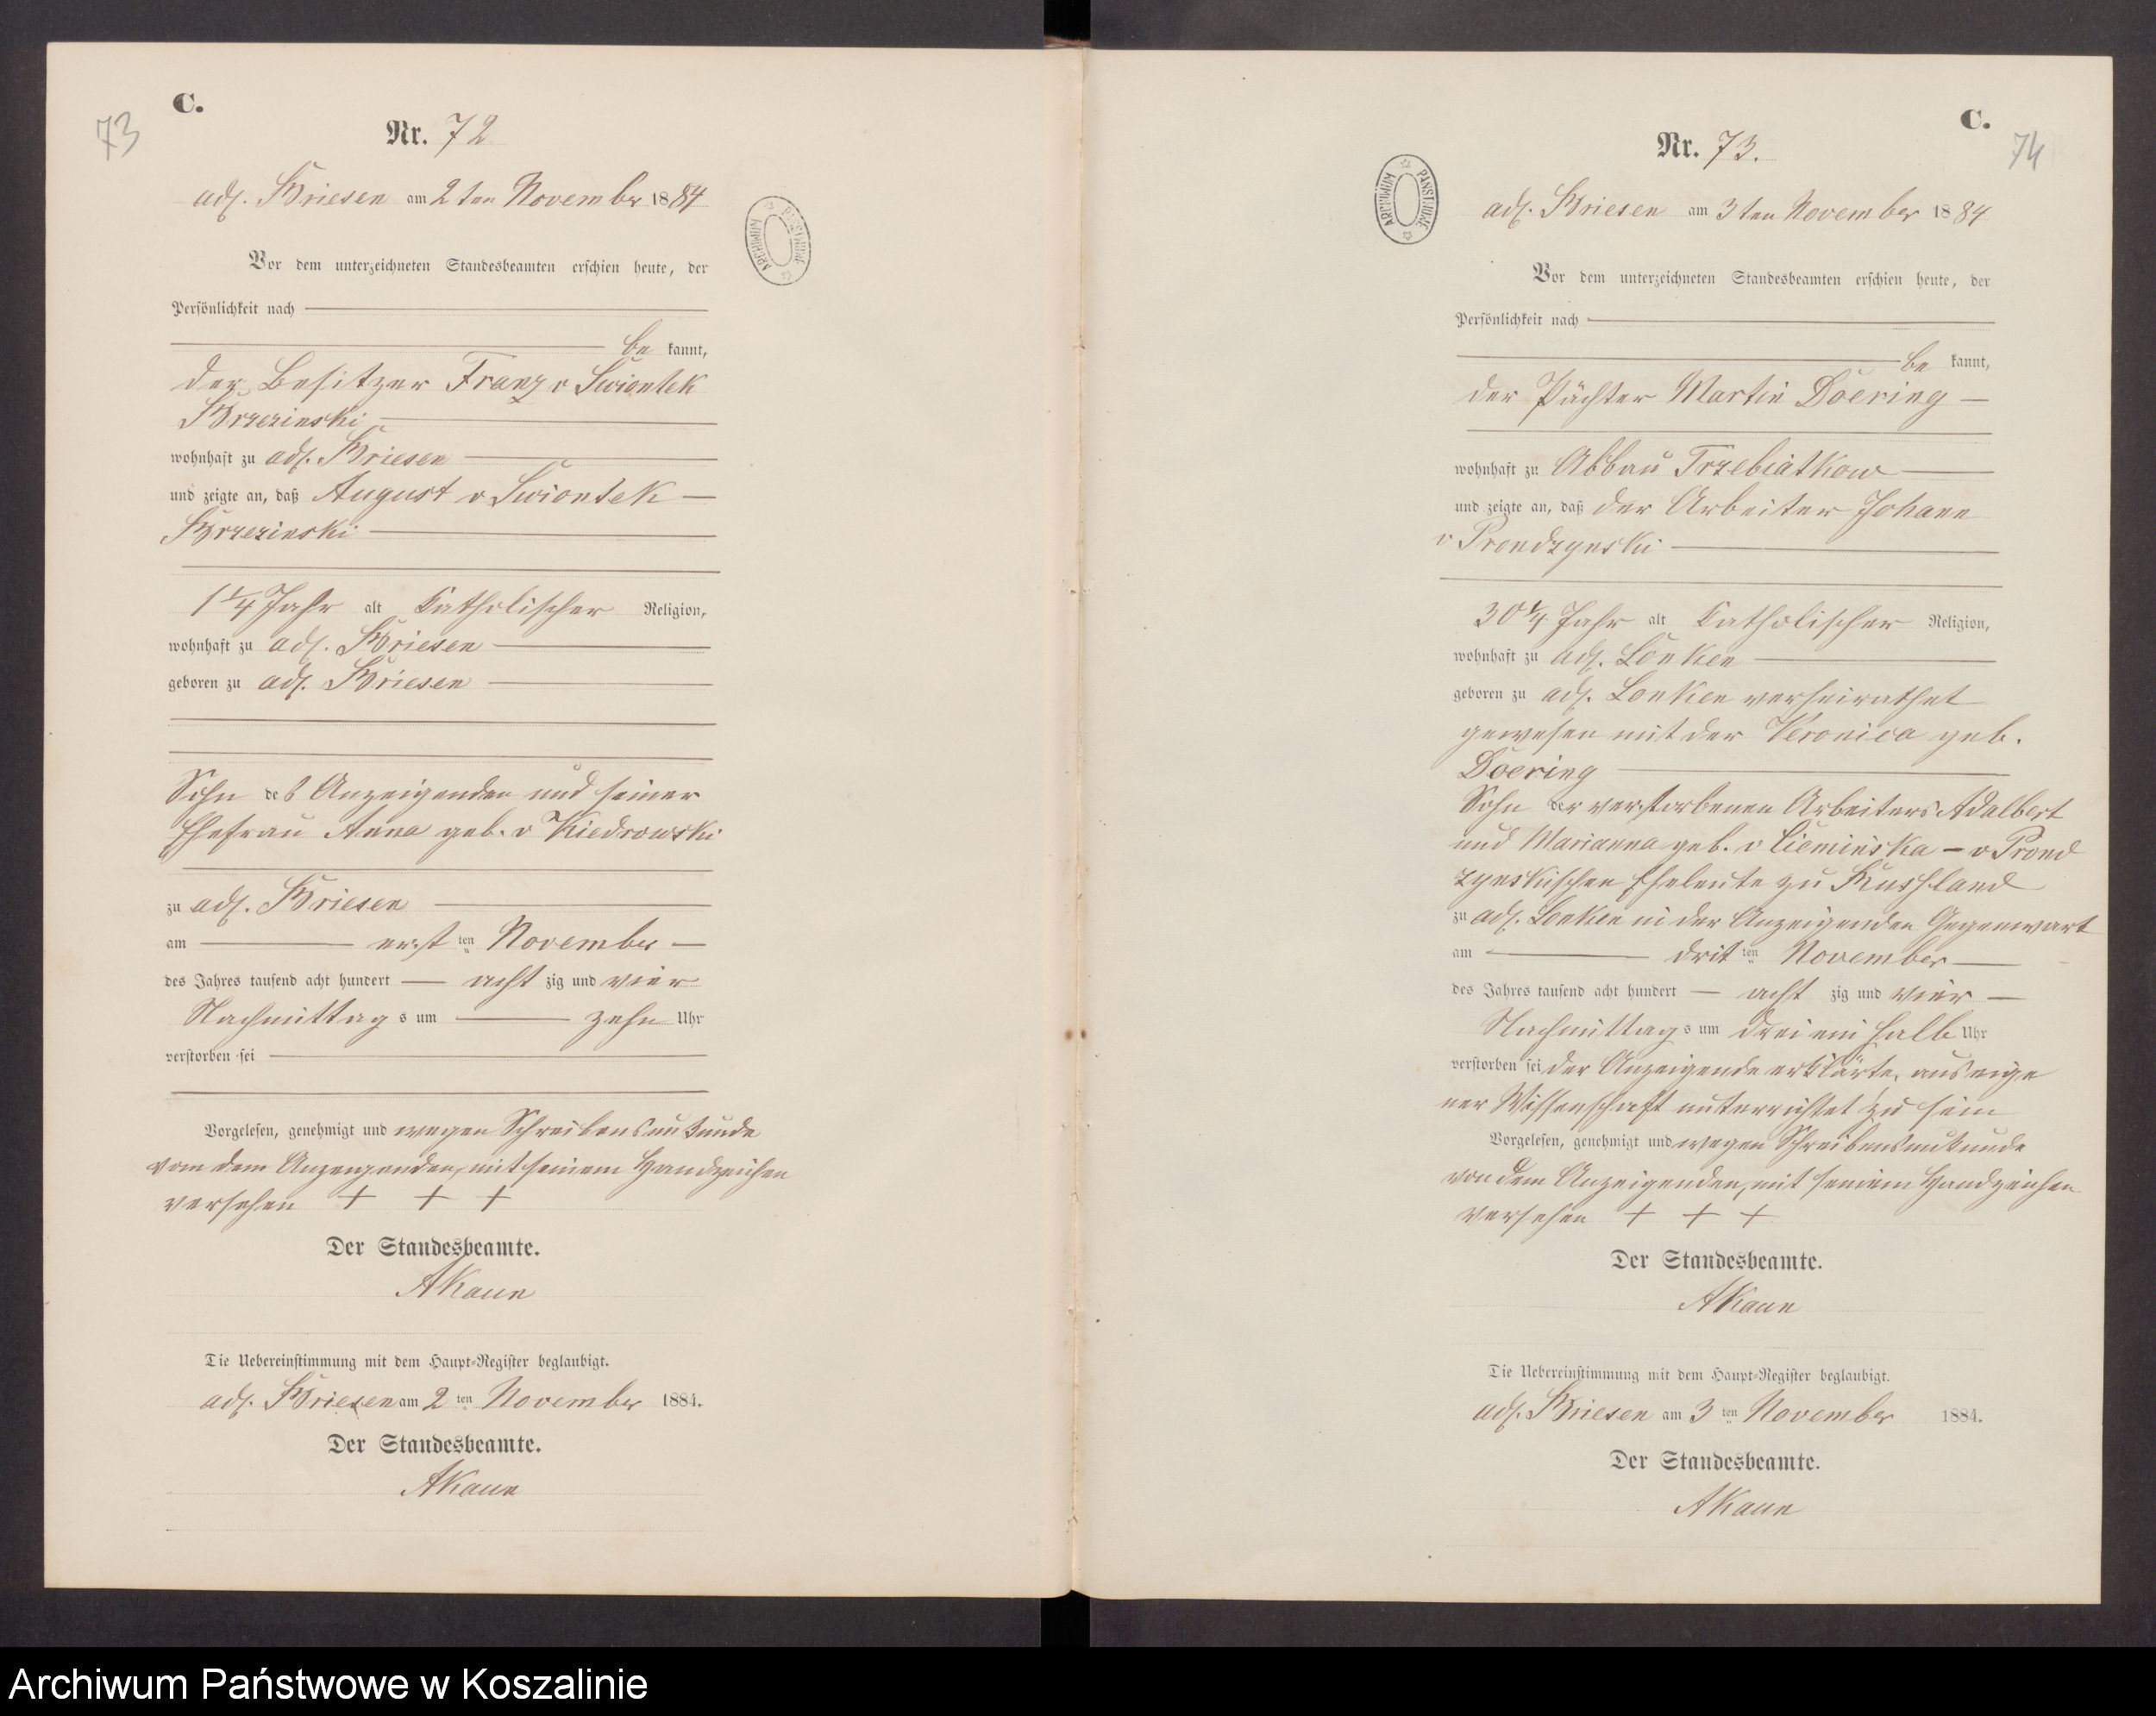 C.
73
Nr. 72
adl. Briesen am 2 ten November 1884
ARCHIWUM PAŃSTWOWE
Vor dem unterzeichneten Standesbeamten erschien heute, der
Persönlichkeit nach
be kannt,
der Besitzer Franz v Swiontek
Brzezinski
wohnhaft zu adl. Briesen
und zeigte an, daß August v Swiontek
Brzezinski
1 1/4 Jahr alt Katholischer Religion,
wohnhaft zu adl. Briesen
geboren zu adl. Briesen
Sohn des Anzeigenden und seiner
Ehefrau Anna geb. v Kiedrowski
zu adl. Briesen
am erst ten November
des Jahres tausend acht hundert acht zig und vier
Nachmittag s um zehn Uhr
verstorben sei
Vorgelesen, genehmigt und wegen Schreibensunkunde
von dem Anzeigenden, mit seinem Handzeichen
versehen + + +
Der Standesbeamte.
AKaun
Die Uebereinstimmung mit dem Haupt-Register beglaubigt.
adl. Briesen am 2 ten November 1884.
Der Standesbeamte.
AKaun
C.
74
Nr. 73.
adl. Briesen am 3 ten November 1884
ARCHIWUM PAŃSTWOWE
Vor dem unterzeichneten Standesbeamten erschien heute, der
Persönlichkeit nach
be kannt,
der Pächter Martin Doering
wohnhaft zu Abbau Trzebiatkow
und zeigte an, daß der Arbeiter Johann
v Prondzynski
30 1/4 Jahr alt Katholischer Religion,
wohnhaft zu adl. Lonken
geboren zu adl. Lonken verheirathet
gewesen mit der Veronica geb.
Doering
Sohn der verstorbenen Arbeiters Adalbert
und Marianna geb. v Cieminska - v Prond
zynskischen Eheleute zu Russland
zu adl. Lonken in der Anzeigenden Gegenwart
am drit ten November
des Jahres tausend acht hundert acht zig und vier
Nachmittag s um drei ein halb Uhr
verstorben sei der Anzeigende erklärte, aus eige
ner Wissenschaft unterrichtet zu sein
Vorgelesen, genehmigt und wegen Schreibensunkunde
von dem Anzeigenden, mit seinem Handzeichen
versehen + + +
Der Standesbeamte.
AKaun
Die Uebereinstimmung mit dem Haupt-Register beglaubigt.
adl. Briesen am 3 ten November 1884.
Der Standesbeamte.
AKaun
Archiwum Państwowe w Koszalinie